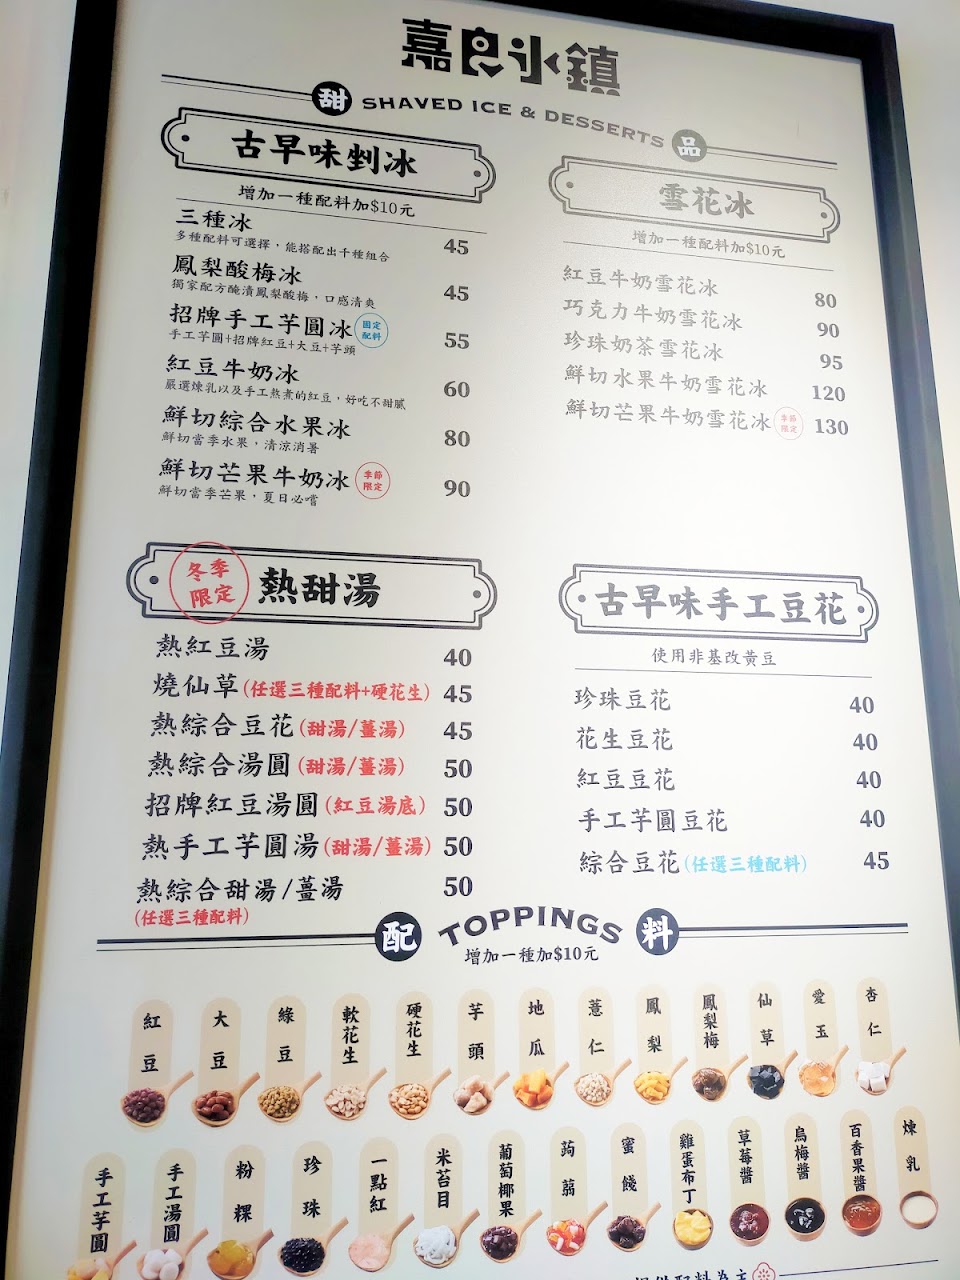 嘉良冰鎮
甜 SHAVED ICE & DESSERTS 品
古早味剉冰
增加一種配料加$10元
三種冰 45
多種配料可選擇，能搭配出千種組合
鳳梨酸梅冰 45
獨家配方醃漬鳳梨酸梅，口感清爽
招牌手工芋圓冰 固定配料 55
手工芋圓+招牌紅豆+大豆+芋頭
紅豆牛奶冰 60
嚴選煉乳以及手工熬煮的紅豆，好吃不甜膩
鮮切綜合水果冰 80
鮮切當季水果，清涼消暑
鮮切芒果牛奶冰 季節限定 90
鮮切當季芒果，夏日必嚐
雪花冰
增加一種配料加$10元
紅豆牛奶雪花冰 80
巧克力牛奶雪花冰 90
珍珠奶茶雪花冰 95
鮮切水果牛奶雪花冰 120
鮮切芒果牛奶雪花冰 季節限定 130
冬季限定 熱甜湯
熱紅豆湯 40
燒仙草(任選三種配料+硬花生) 45
熱綜合豆花(甜湯/薑湯) 45
熱綜合湯圓(甜湯/薑湯) 50
招牌紅豆湯圓(紅豆湯底) 50
熱手工芋圓湯(甜湯/薑湯) 50
熱綜合甜湯/薑湯 50
(任選三種配料)
古早味手工豆花
使用非基改黃豆
珍珠豆花 40
花生豆花 40
紅豆豆花 40
手工芋圓豆花 40
綜合豆花(任選三種配料) 45
配 TOPPINGS 料
增加一種加$10元
紅豆
大豆
綠豆
軟花生
硬花生
芋頭
地瓜
薏仁
鳳梨
鳳梨梅
仙草
愛玉
杏仁
手工芋圓
手工湯圓
粉粿
珍珠
一點紅
米苔目
葡萄椰果
蒟蒻
蜜餞
雞蛋布丁
草莓醬
烏梅醬
百香果醬
煉乳